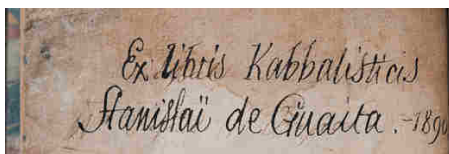 Ex libris Kabbalisticis
Stanislaï de Guaita. - 1890